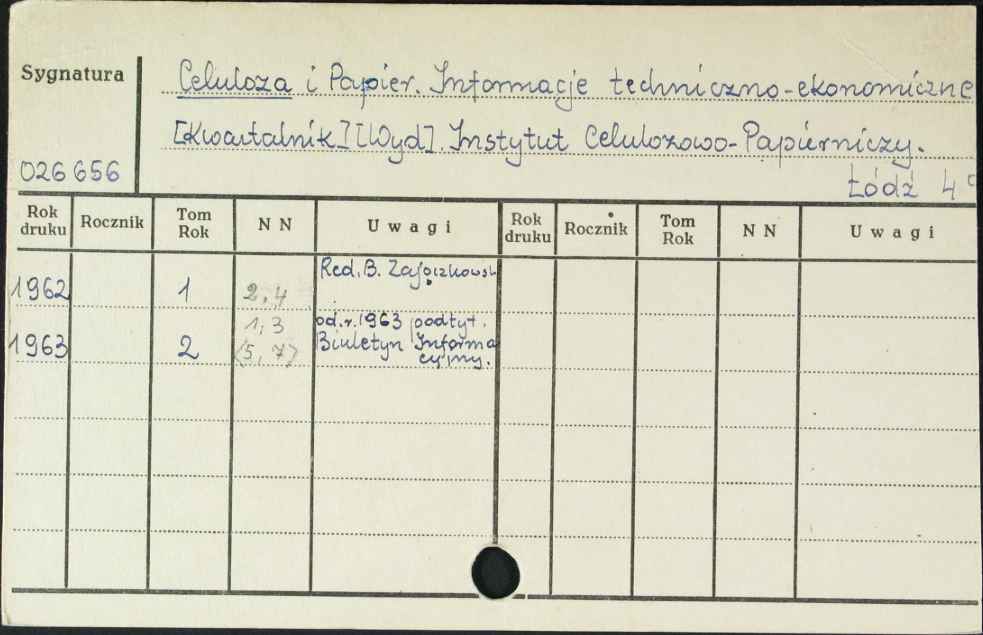 Sygnatura
Celuloza i Papier. Informacje techniczno-ekonomiczne
[Kwartalnik] [Wyd]. Instytut Celulozowo-Papierniczy.
026656
Łódź 4°
Rok druku Rocznik Tom Rok NN Uwagi Rok druku Rocznik Tom Rok NN Uwagi
Red. B. Zajączkowski
1962 1 2, 4
1, 3 od. r. 1963 podtyt.
1963 2 (5, 7) Biuletyn Informa
cyjny.